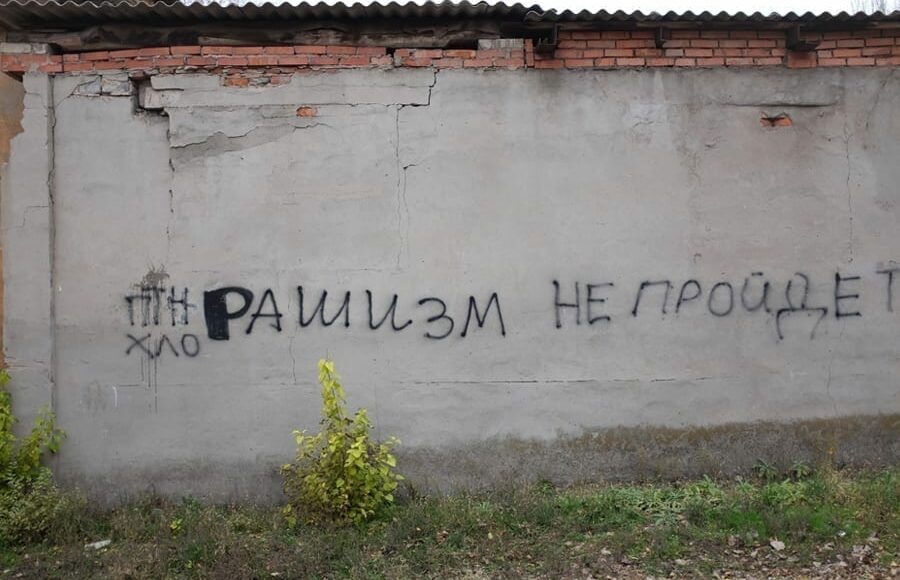 ПТН
ХЛО
РАШИЗМ НЕ ПРОЙДЕТ